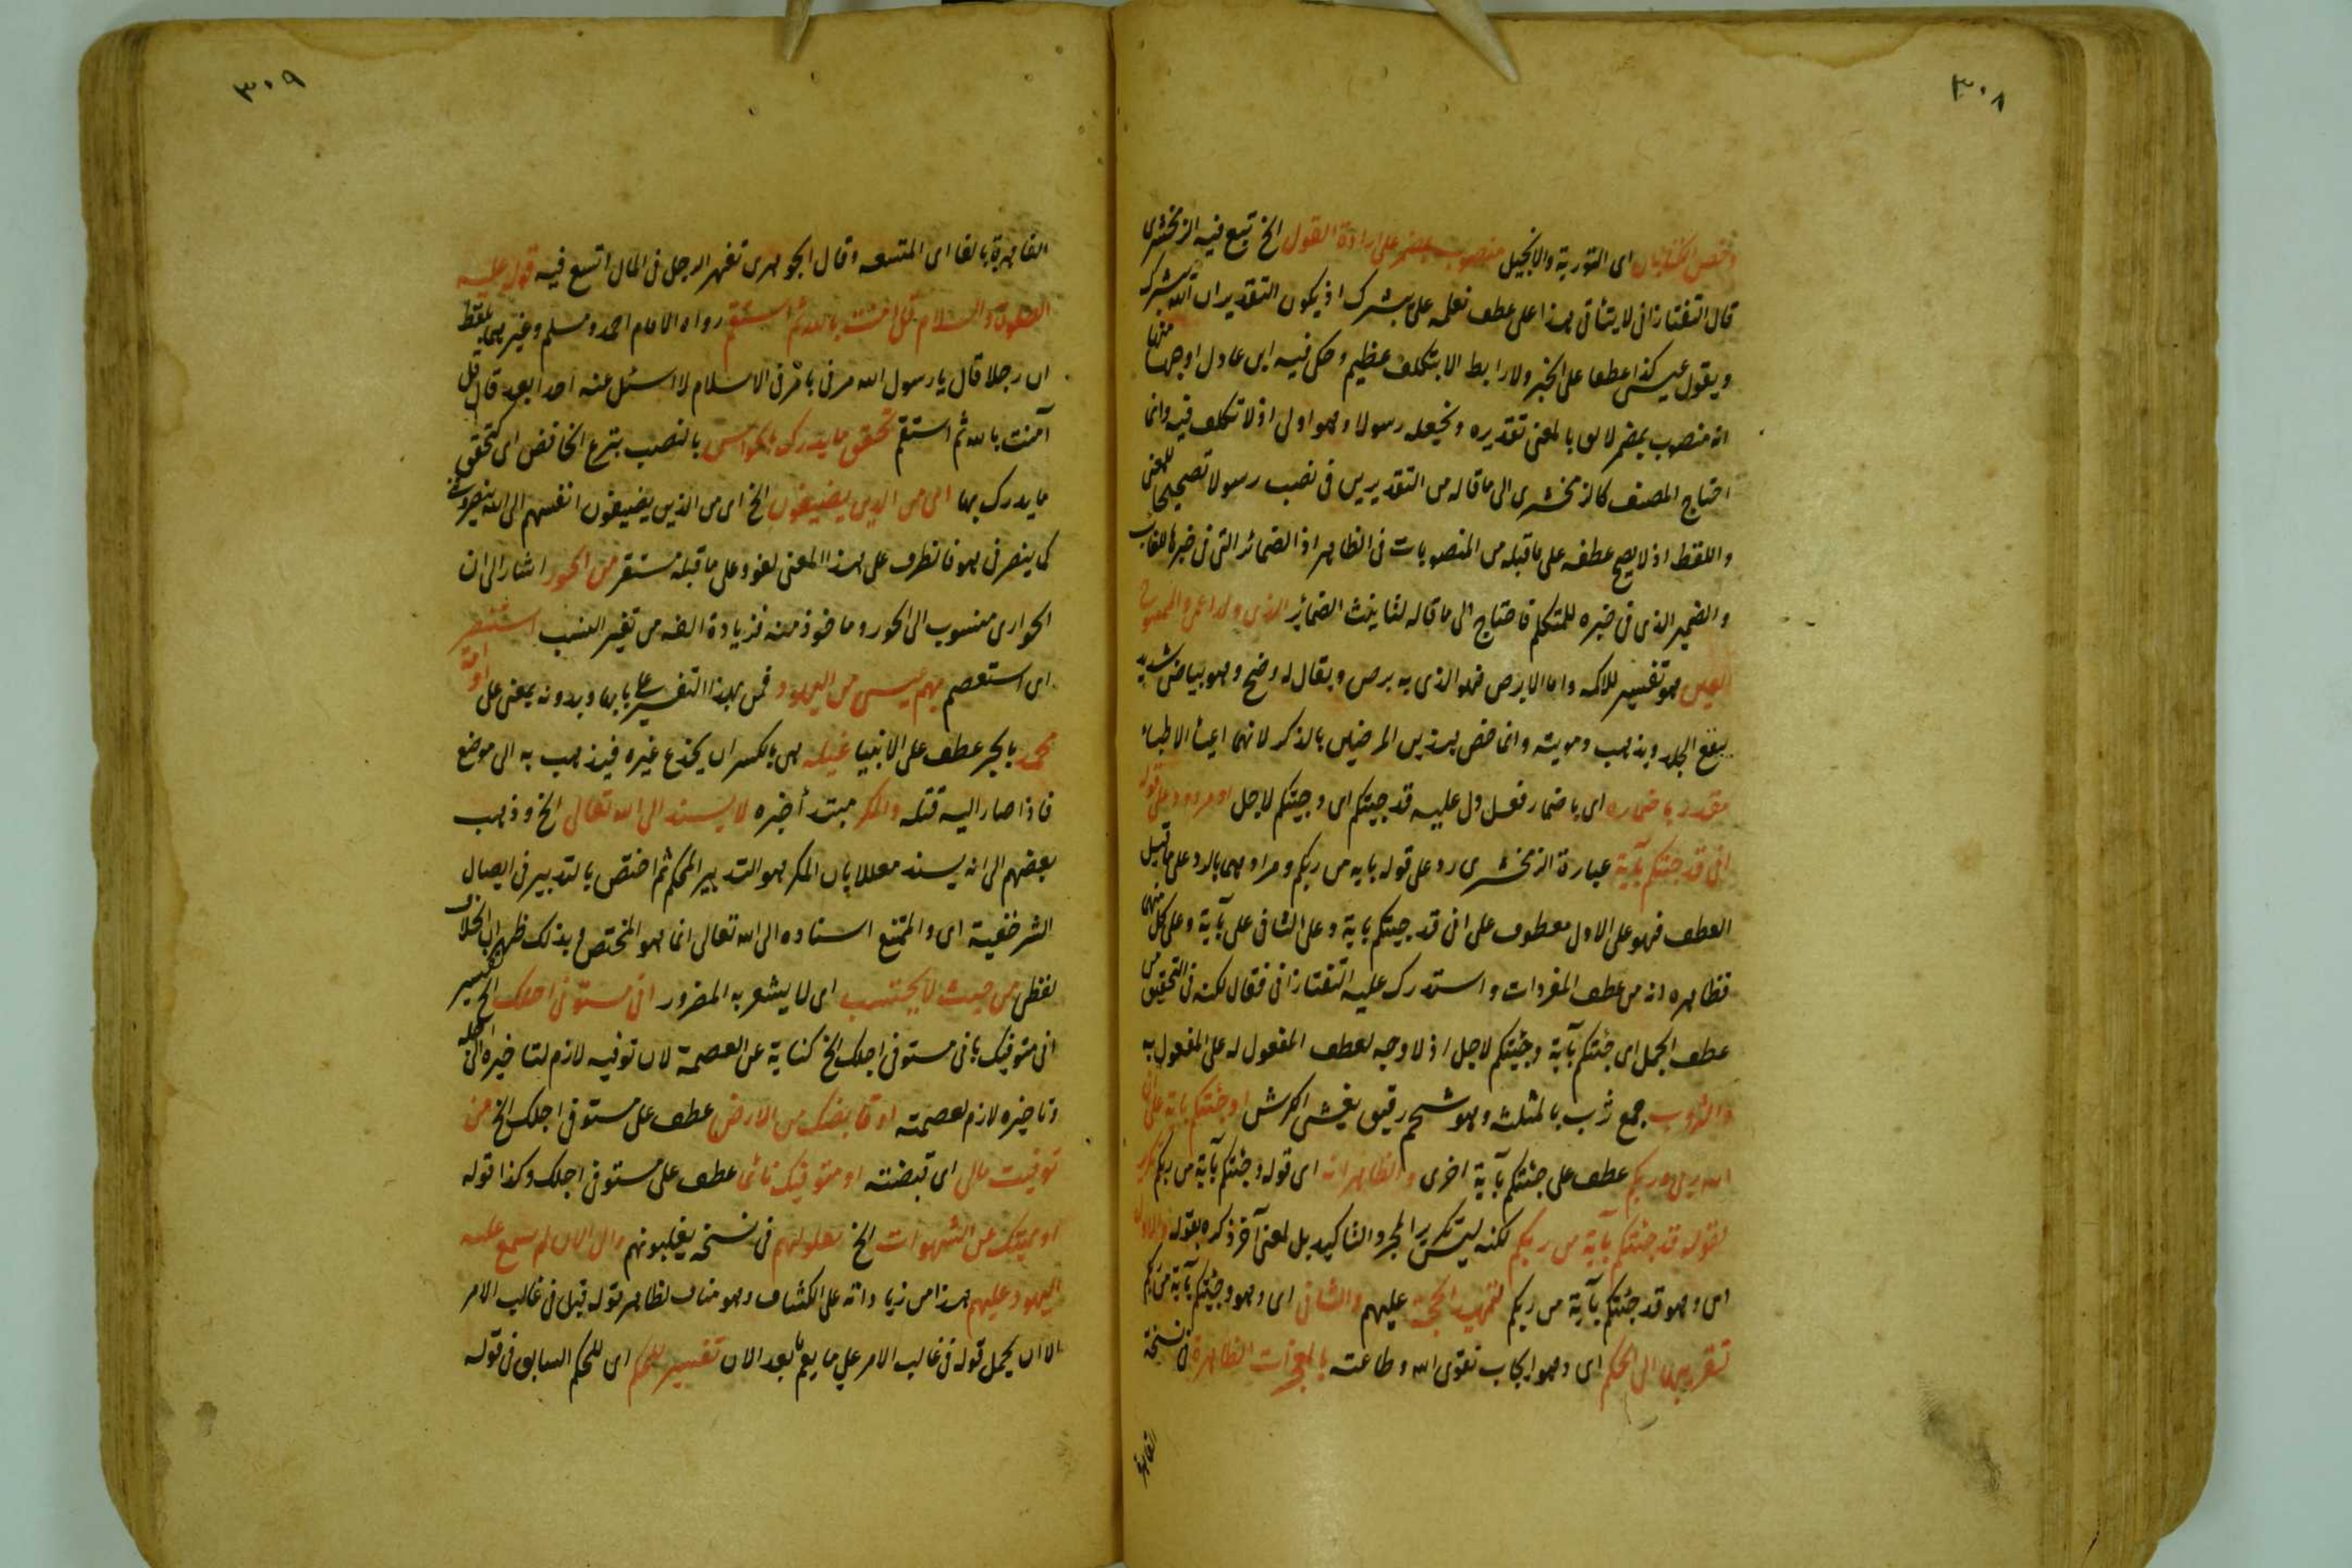 ٣٠٨
وخص الكتابان اى التورية والانجيل منصوب بمضمر على ارادة القول الخ تبع فيه الزمخشرى
قال التفتازانى لا يتأتى هذا على عطف نعلمه على يبشرك اذ يكون التقدير ان الله يبشرك
ويقول عيسى كذا عطفا على الخبر ولا رابط الا بتكلف عظيم وحكى فيه ابن عادل اوجها منها
انه منصوب بمضمر لائق بالمعنى تقديره ونجعله رسولا وهو اولى اذ لا تكلف فيه وانما
احتاج المصنف كالزمخشرى الى ما قاله من التقديرين فى نصب رسولا تصحيحا للمعنى
واللفظ اذ لا يصح عطفه على ما قبله من المنصوبات فى الظاهر اذ الضمائر التى فى خبرها للغائب
والضمير الذى فى خبره للمتكلم فاحتاج الى ما قاله لتأنيث الضمائر الذى ولد اعمى والممسوح
العين هو تفسير للاكمه واما الابرص فهو الذى به برص ويقال له وضح وهو بياض شديد
يبقع الجلد ويذهب دمويته وانما خص هذين المرضين بالذكر لانهما اعيت الاطباء
مقدر باضماره اى باضمار فعل دل عليه قد جئتكم اى وجئتكم لاحل او مردود على قوله
انى قد جئتكم بآية عبارة الزمخشرى رد على قوله بآية من ربكم ومراد هما بالرد على ما قيل
العطف فهو على الاول معطوف على انى قد جئتكم بآية وعلى الثانى على بآية وعلى كل منهما
فظاهره انه من عطف المفردات واستدرك عليه التفتازانى فقال لكنه فى التحقيق من
عطف الجمل اى جئتكم بآية وجئتكم لاحل اذ لا وجه لعطف المفعول له على المفعول به
والثروب جمع ثرب بالمثلثة وهو شحم رقيق يغشى الكرش او جئتكم بآية على ان
الله ربى وربكم عطف على جئتكم بآية اخرى والظاهر انه اى قوله وجئتكم بآية من ربكم تكرير
لقوله قد جئتكم بآية من ربكم لكنه ليس تكرير المجرد التأكيد بل لمعنى آخر ذكره بقوله والاول
اى وهو قد جئتكم بآية من ربكم لتمهيد الحجة عليهم والثانى اى وهو وجئتكم بآية من ربكم
تقريبها الى الحكم اى وهو ايجاب تقوى الله وطاعته بالمعجزات الظاهرة فى نسخة
القاهرة
٣٠٩
القاهرة بالفا اى المتسعه وقال الجوهرى تفهر الرجل فى المال اتسع فيه قوله عليه
الصلوة والسلام قل آمنت بالله ثم استقم رواه الامام احمد ومسلم وغيرهما بلفظ
ان رجلا قال يا رسول الله مرنى بأمر فى الاسلام لا اسئل عنه احدا بعد قال قل
آمنت بالله ثم استقم تحقق ما يدرك بالحواس بالنصب بنزع الخافض اى كتحقق
ما يدرك بها اى من الذين يضيفون الخ اى من الذين يضيفون انفسهم الى الله ينصروننى
كما ينصرنى هو فالظرف على هذا المعنى لغو وعلى ما قبله مستقر من الحور اشار الى ان
الحوارى منسوب الى الحور وماخوذ منه فزيادة الفه من تغير النسب استنفر
اى استعصم منهم عيسى من اليهود فمن بهذا التفسير على بابها وبدونه بمعنى على او امة
محمد بالجر عطف على الانبيا غيلة هى بالكسر ان يخدع غيره فيذهب به الى موضع
فاذا صار اليه قتله والمكر مبتدأ خبره لا يسند الى الله تعالى الخ وذهب
بعضهم الى انه يسند معللا بان المكر هو التدبير المحكم ثم اختص بالتدبير فى ايصال
الشر خفية اى والممتنع اسناده الى الله تعالى انما هو المختص وبذلك ظهر ان الخلاف
لفظى من حيث لا يحتسب اى لا يشعر به المضرور انى مستوفى اجلك الخ تفسير
انى متوفيك بانى مستوفى اجلك الخ كناية عن العصمة لان توفيه لازم لتاخيره الى اجله
وتاخيره لازم لعصمته او قابضك من الارض عطف على مستوفى اجلك الخ من
توفيت مالى اى قبضته او متوفيك نائما عطف على مستوفى اجلك وكذا قوله
او مميتك عن الشهوات الخ يعلونهم فى نسخة يغلبونهم والى الان لم يسمع غلبه
اليهود عليهم هذا من زياداته على الكشاف وهو مناف لظاهر قوله قبل فى غالب الامر
الا ان يحمل قوله فى غالب الامر على ما يعم ما بعد الان تفسير للحكم اى للحكم السابق فى قوله